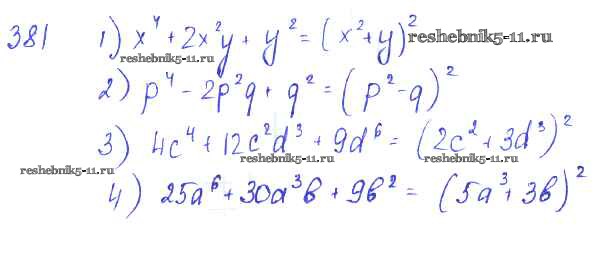 381 1) x⁴ + 2x²y + y² = (x² + y)²
reshebnik5-11.ru
reshebnik5-11.ru
2) p⁴ - 2p²q + q² = (p² - q)²
3) 4c⁴ + 12c²d³ + 9d⁶ = (2c² + 3d³)²
reshebnik5-11.ru reshebnik5-11.ru
reshebnik5-11.ru
4) 25a⁶ + 30a³b + 9b² = (5a³ + 3b)²